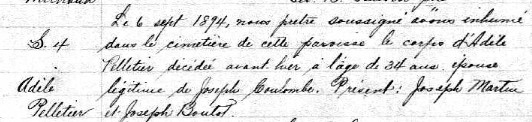 Le 6 sept 1894, nous pretre soussigné avons inhumé
S. 4 dans le cimetière de cette paroisse le corps d'Adèle
Pelletier décédé avant hier à l'âge de 34 ans. epouse
Adèle légitime de Joseph Coulombe. Présent: Joseph Martin
Pelletier et Joseph Boutot.